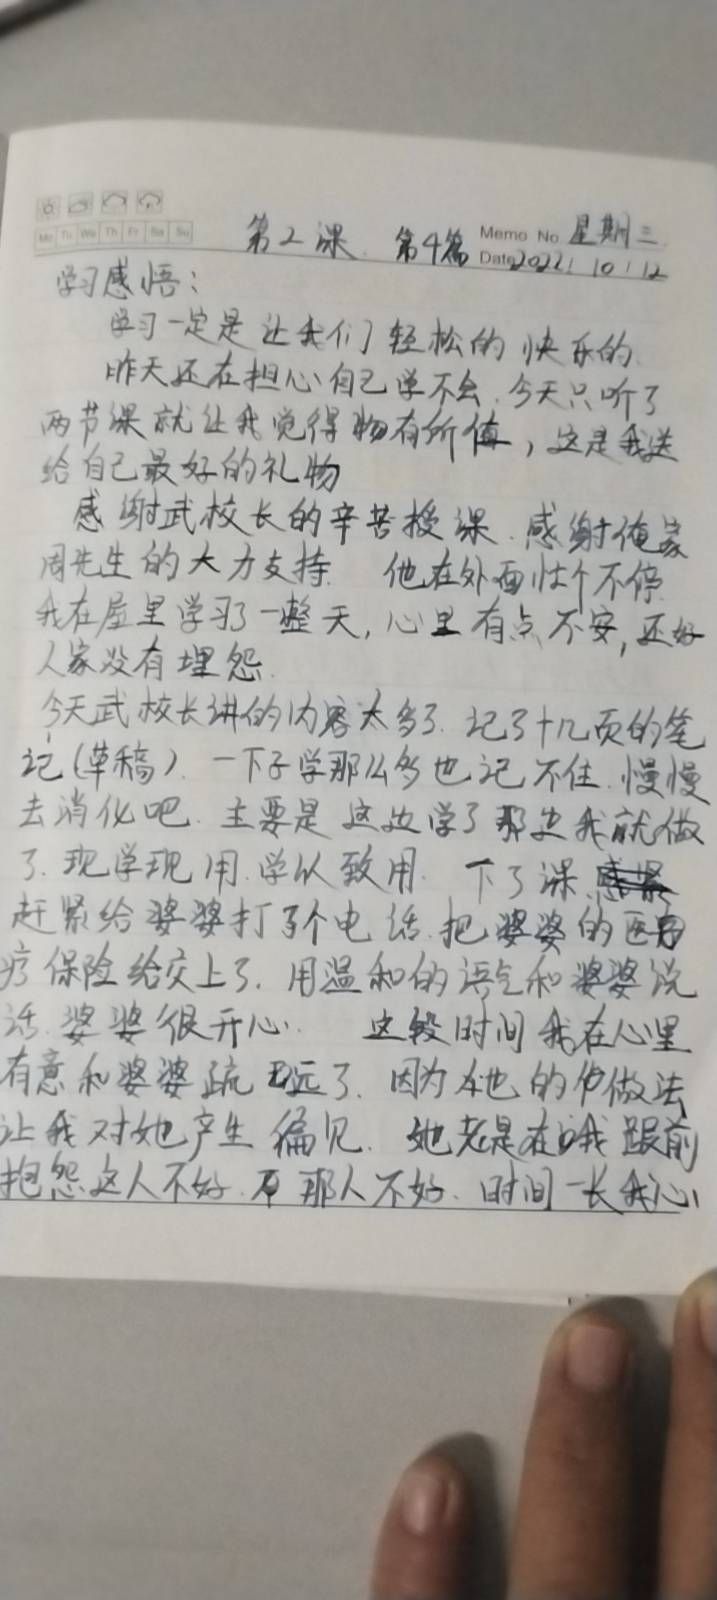 Mo Tu We Th Fr Sa Su
第2课. 第4篇 Memo No. 星期三
Date 2022 / 10 / 12
学习感悟：
学习一定是让我们轻松的快乐的.
昨天还在担心自己学不会. 今天只听了
两节课就让我觉得物有所值，这是我送
给自己最好的礼物
感谢武校长的辛苦授课. 感谢俺家
周先生的大力支持. 他在外面忙个不停
我在屋里学习了一整天，心里有点不安，还好
人家没有埋怨.
今天武校长讲的内容太多了. 记了十几页的笔
记（草稿）. 一下子学那么多也记不住. 慢慢
去消化吧. 主要是这边学了那边我就做
了. 现学现用. 学以致用. 下了课.
赶紧给婆婆打了个电话. 把婆婆的医
疗保险给交上了. 用温和的语气和婆婆说
话. 婆婆很开心. 这段时间我在心里
有意和婆婆疏远了. 因为她的做法
让我对她产生偏见. 她老是在我跟前
抱怨这人不好. 那人不好. 时间一长我心